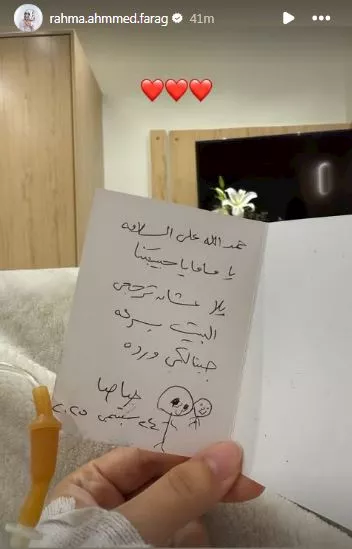 rahma.ahmmed.farag 41m
حمدالله على السلامه
يا ماما يا حبيبتنا
يلا عشان ترجعي
البيت بسرعه
جبنالكي ورده
٢٤ سبتمبر ٢٠٢٥